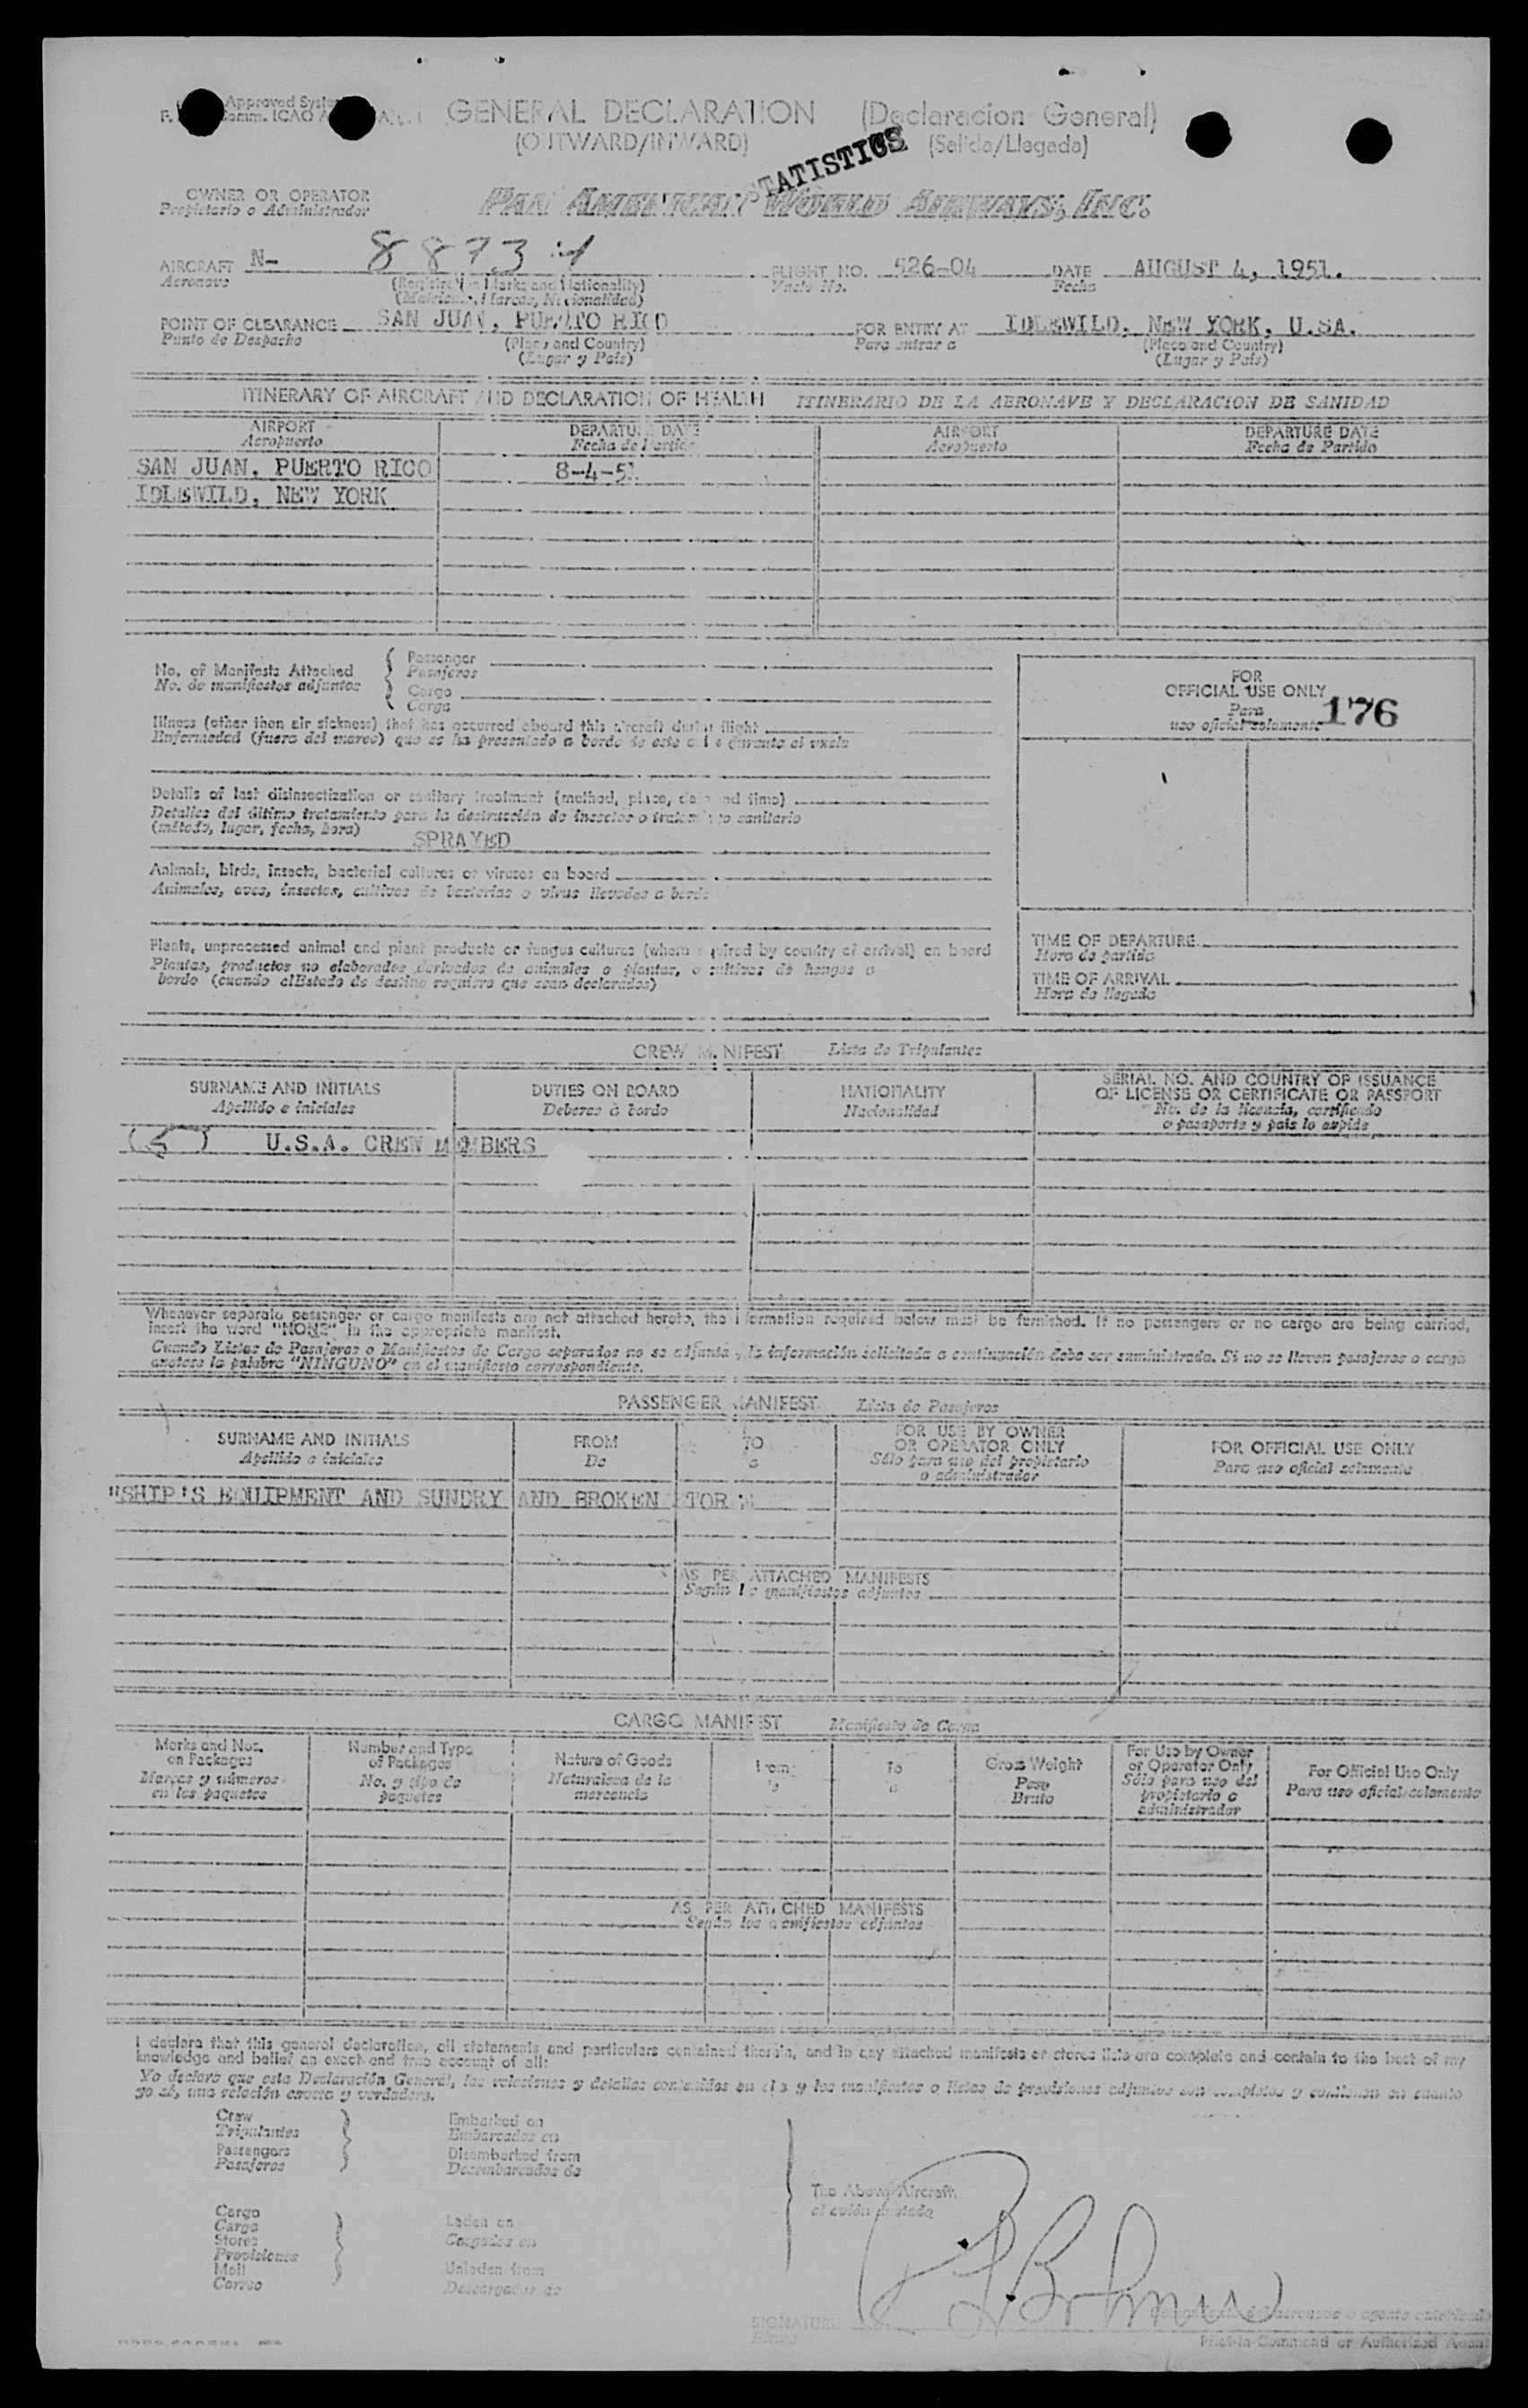 Approved System
Comm. ICAO
GENERAL DECLARATION (Declaracion General)
(OUTWARD/INWARD) (Salida/Llegada)
STATISTICS
OWNER OR OPERATOR
Propietario o Administrador
PAN AMERICAN WORLD AIRWAYS, INC.
AIRCRAFT N- 88734 FLIGHT NO. 526-04 DATE AUGUST 4, 1951.
Aeronave Vuelo No. Fecha
(Registration Marks and Nationality)
(Matricula, Marcas, Nacionalidad)
POINT OF CLEARANCE SAN JUAN, PUERTO RICO FOR ENTRY AT IDLEWILD, NEW YORK, U.SA.
Punto de Despacho (Place and Country) Para entrar a (Place and Country)
(Lugar y País) (Lugar y País)
ITINERARY OF AIRCRAFT AND DECLARATION OF HEALTH ITINERARIO DE LA AERONAVE Y DECLARACION DE SANIDAD
AIRPORT DEPARTURE DATE AIRPORT DEPARTURE DATE
Aeropuerto Fecha de Partida Aeropuerto Fecha de Partida
SAN JUAN, PUERTO RICO 8-4-51
IDLEWILD, NEW YORK
No. of Manifests Attached
No. de manifiestos adjuntos
Passenger
Pasajeros
Cargo
Carga
FOR
OFFICIAL USE ONLY
Para
uso oficial solamente
176
Illness (other than air sickness) that has occurred aboard this aircraft during flight
Enfermedad (fuera del mareo) que se ha presentado a bordo de este durante el vuelo
Details of last disinsectization or sanitary treatment (method, place, date and time)
Detalles del último tratamiento para la destrucción de insectos o tratamiento sanitario
(método, lugar, fecha, hora)
SPRAYED
Animals, birds, insects, bacterial cultures or viruses on board
Animales, aves, insectos, cultivos de bacterias o virus llevados a bordo
Plants, unprocessed animal and plant products or fungus cultures (when required by country of arrival) on board
Plantas, productos no elaborados derivados de animales o plantas, o cultivos de hongos a
bordo (cuando elEstado de destino requiera que sean declarados)
TIME OF DEPARTURE
Hora de partida
TIME OF ARRIVAL
Hora de llegada
CREW MANIFEST Lista de Tripulantes
SURNAME AND INITIALS DUTIES ON BOARD NATIONALITY SERIAL NO. AND COUNTRY OF ISSUANCE
OF LICENSE OR CERTIFICATE OR PASSPORT
Apellido e iniciales Deberes a bordo Nacionalidad No. de la licencia, certificado
o pasaporte y país lo expide
(5) U.S.A. CREW MEMBERS
Whenever separate passenger or cargo manifests are not attached hereto, the information required below must be furnished. If no passengers or no cargo are being carried,
insert the word "NONE" in the appropriate manifest.
Cuando Listas de Pasajeros o Manifiestos de Carga separados no se adjunta, la información solicitada a continuación debe ser suministrada. Si no se llevan pasajeros o carga
anótese la palabra "NINGUNO" en el manifiesto correspondiente.
PASSENGER MANIFEST Lista de Pasajeros
SURNAME AND INITIALS FROM TO FOR USE BY OWNER
OR OPERATOR ONLY FOR OFFICIAL USE ONLY
Apellido e iniciales De a Sólo para uso del propietario
o administrador Para uso oficial solamente
"SHIP'S EQUIPMENT AND SUNDRY AND BROKEN STORES
AS PER ATTACHED MANIFESTS
Según los manifiestos adjuntos
CARGO MANIFEST Manifiesto de Carga
Marks and Nos.
on Packages
Marcas y números
en los paquetes
Number and Type
of Packages
No. y tipo de
paquetes
Nature of Goods
Naturaleza de la
mercancía
From
To
Gross Weight
Peso
Bruto
For Use by Owner
or Operator Only
Sólo para uso del
propietario o
administrador
For Official Use Only
Para uso oficial solamente
AS PER ATTACHED MANIFESTS
Según los manifiestos adjuntos
I declare that this general declaration, all statements and particulars contained therein, and in any attached manifests or stores lists are complete and contain to the best of my
knowledge and belief an exact and true account of all:
Yo declaro que esta Declaración General, las relaciones y detalles contenidos en ella y los manifiestos o listas de provisiones adjuntos son completos y contienen en cuanto
yo sé, una relación exacta y verdadera.
Crew
Tripulantes
Passengers
Pasajeros
Embarked on
Embarcados en
Disembarked from
Desembarcados de
The Above Aircraft
el avión
Cargo
Carga
Stores
Provisiones
Mail
Correo
Laden on
Cargados en
Unladen from
Descargados de
SIGNATURE
Firma
Pilot-in-Command or Authorized Agent